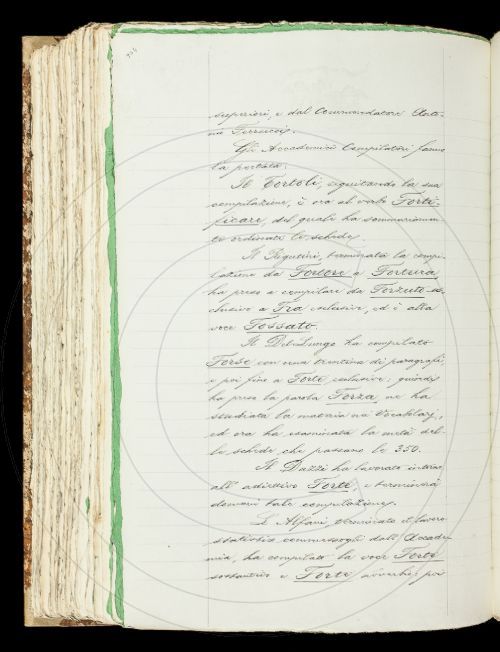 superiori, e dal Commendatore Anto-
nio Ferrucci.
Gli Accademici Compilatori fanno
la portata.
Il Tortoli, seguitando la sua
compilazione, è ora al verbo Forti-
ficare, del quale ha sommariamen-
te ordinate le schede.
Il Rigutini, terminata la compi-
lazione da a
ha preso a compilare da
clusive a Fra esclusive, ed è alla
voce Fossato.
Il Del Lungo ha compilato
Forse con una trentina di paragrafi,
e poi fino a Forte esclusive; quindi
ha preso la parola Forza, ne ha
studiata la materia nei Vocabolarj,
ed ora ha esaminata la metà del-
le schede, che passano le 350.
Il Dazzi ha lavorato intorno
all' adiettivo Forte, e terminerà
domani tale compilazione.
L' Alfani, terminato il lavoro
statistico commessogli dall' Accade-
mia, ha compilato la voce Forte
sostantivo e Forte avverbio; poi